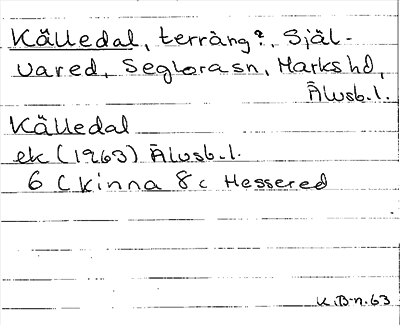 Källedal, terräng?, Själ-
vared, Seglorasn, Marks hd,
Älvsb.l.
Källedal
ek (1963) Älvsb.l.
6 C Kinna 8c Hessered
K.B-n.63